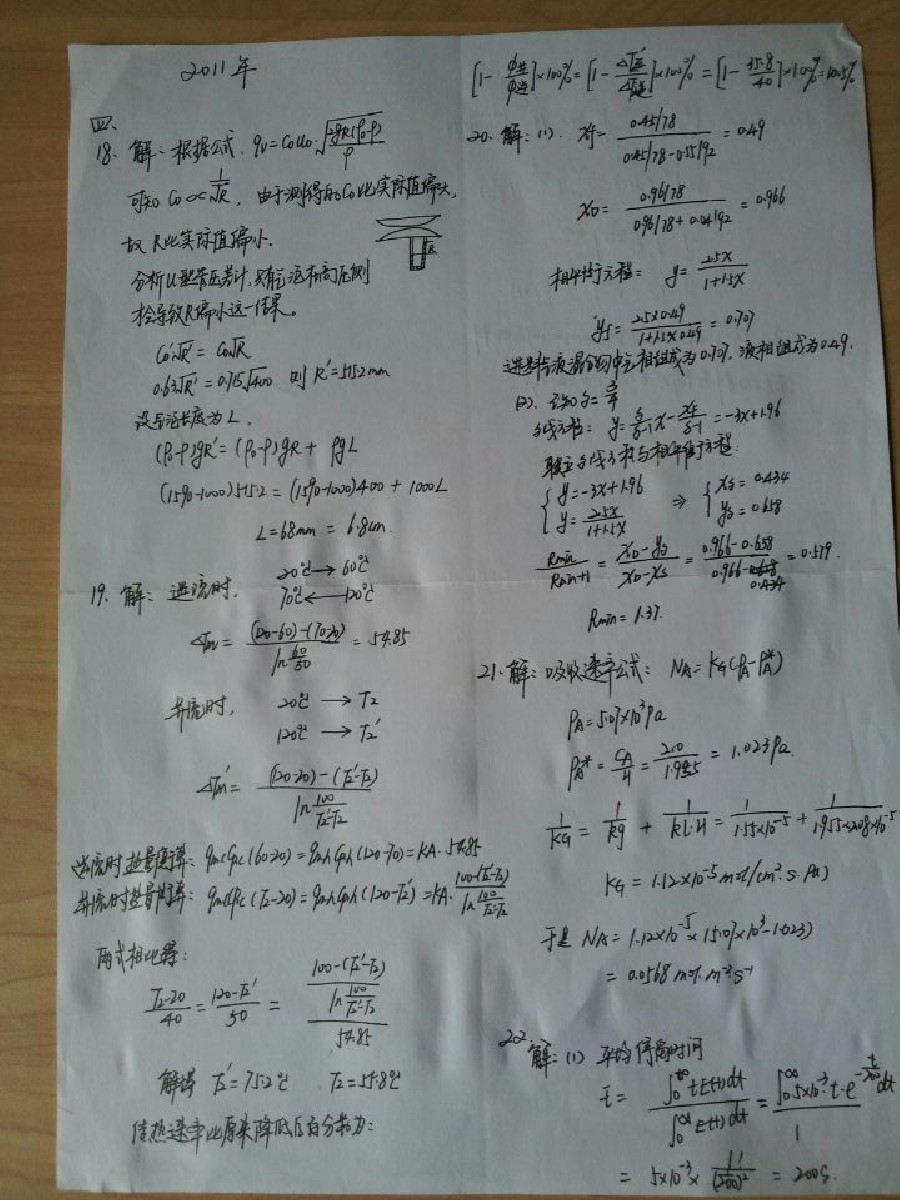 2011年
四、
18、解：根据公式. qv=CoUo·√(2gR(ρ0-ρ)/ρ)
可知 Co∝1/√R, 由于测得的Co比实际值偏大,
故 R比实际值偏小.
分析U型管压差计,只有气泡在高压侧
才会导致R偏小这一结果。
Co'√R' = Co√R
0.63√R' = 0.715√400 则 R'=515.2mm
设气泡长度为L,
(ρ0-ρ)gR' = (ρ0-ρ)gR + ρgL
(1590-1000)515.2 = (1590-1000)400 + 1000L
L=68mm = 6.8cm
19、解: 逆流时. 20℃ → 60℃
70℃ ← 120℃
△tm = ((120-60)-(70-20))/(ln 60/50) = 54.85
并流时, 20℃ → T2
120℃ → T2'
△tm' = ((120-20)-(T2'-T2))/(ln 100/(T2'-T2))
逆流时热量衡算: qmcCpc(60-20) = qmhCph(120-70) = KA·54.85
并流时热量衡算: qmcCpc(T2-20) = qmhCph(120-T2') = KA·(100-(T2'-T2))/(ln 100/(T2'-T2))
两式相比得:
(T2-20)/40 = (120-T2')/50 = ((100-(T2'-T2))/(ln 100/(T2'-T2)))/54.85
解得 T2'=75.2℃ T2=55.8℃
传热速率比原来降低的百分数为:
[1-φ并/φ逆]×100% = [1-△T并/△T逆]×100% = [1-35.8/40]×100% = 10.5%
20、解: (1). xf = (0.45/78)/(0.45/78-0.55/92) = 0.49
xD = (0.96/78)/(0.96/78+0.04/92) = 0.966
相平衡方程: y = 2.5x/(1+1.5x)
yf = (2.5×0.49)/(1+1.5×0.49) = 0.707
进料液混合物中气相组成为0.707, 液相组成为0.49.
联立q线方程与相平衡方程
{y=-3x+1.96
y=2.5x/(1+1.5x) ⇒ {xδ=0.434
yδ=0.658
Rmin/(Rmin+1) = (xD-yδ)/(xD-xδ) = (0.966-0.658)/(0.966-0.434) = 0.579.
Rmin = 1.37.
21、解: 吸收速率公式: NA=KG(PA-PA*)
PA=5.07×10³Pa
1/KG = 1/kg + 1/(kL·H) = 1/(1.55×10⁻⁵) + 1/(1.955×2.08×10⁻⁵)
KG = 1.12×10⁻⁵ mol/(m²·s·Pa)
= 0.0568 mol·m⁻²·s⁻¹
22. 解: (1) 平均停留时间
t̄ = ∫0^∞ tE(t)dt / ∫0^∞ E(t)dt = ∫0^∞ 5×10⁻³·t·e^(-t/200)dt / 1
= 5×10⁻³ × 1/(1/200)² = 200s.